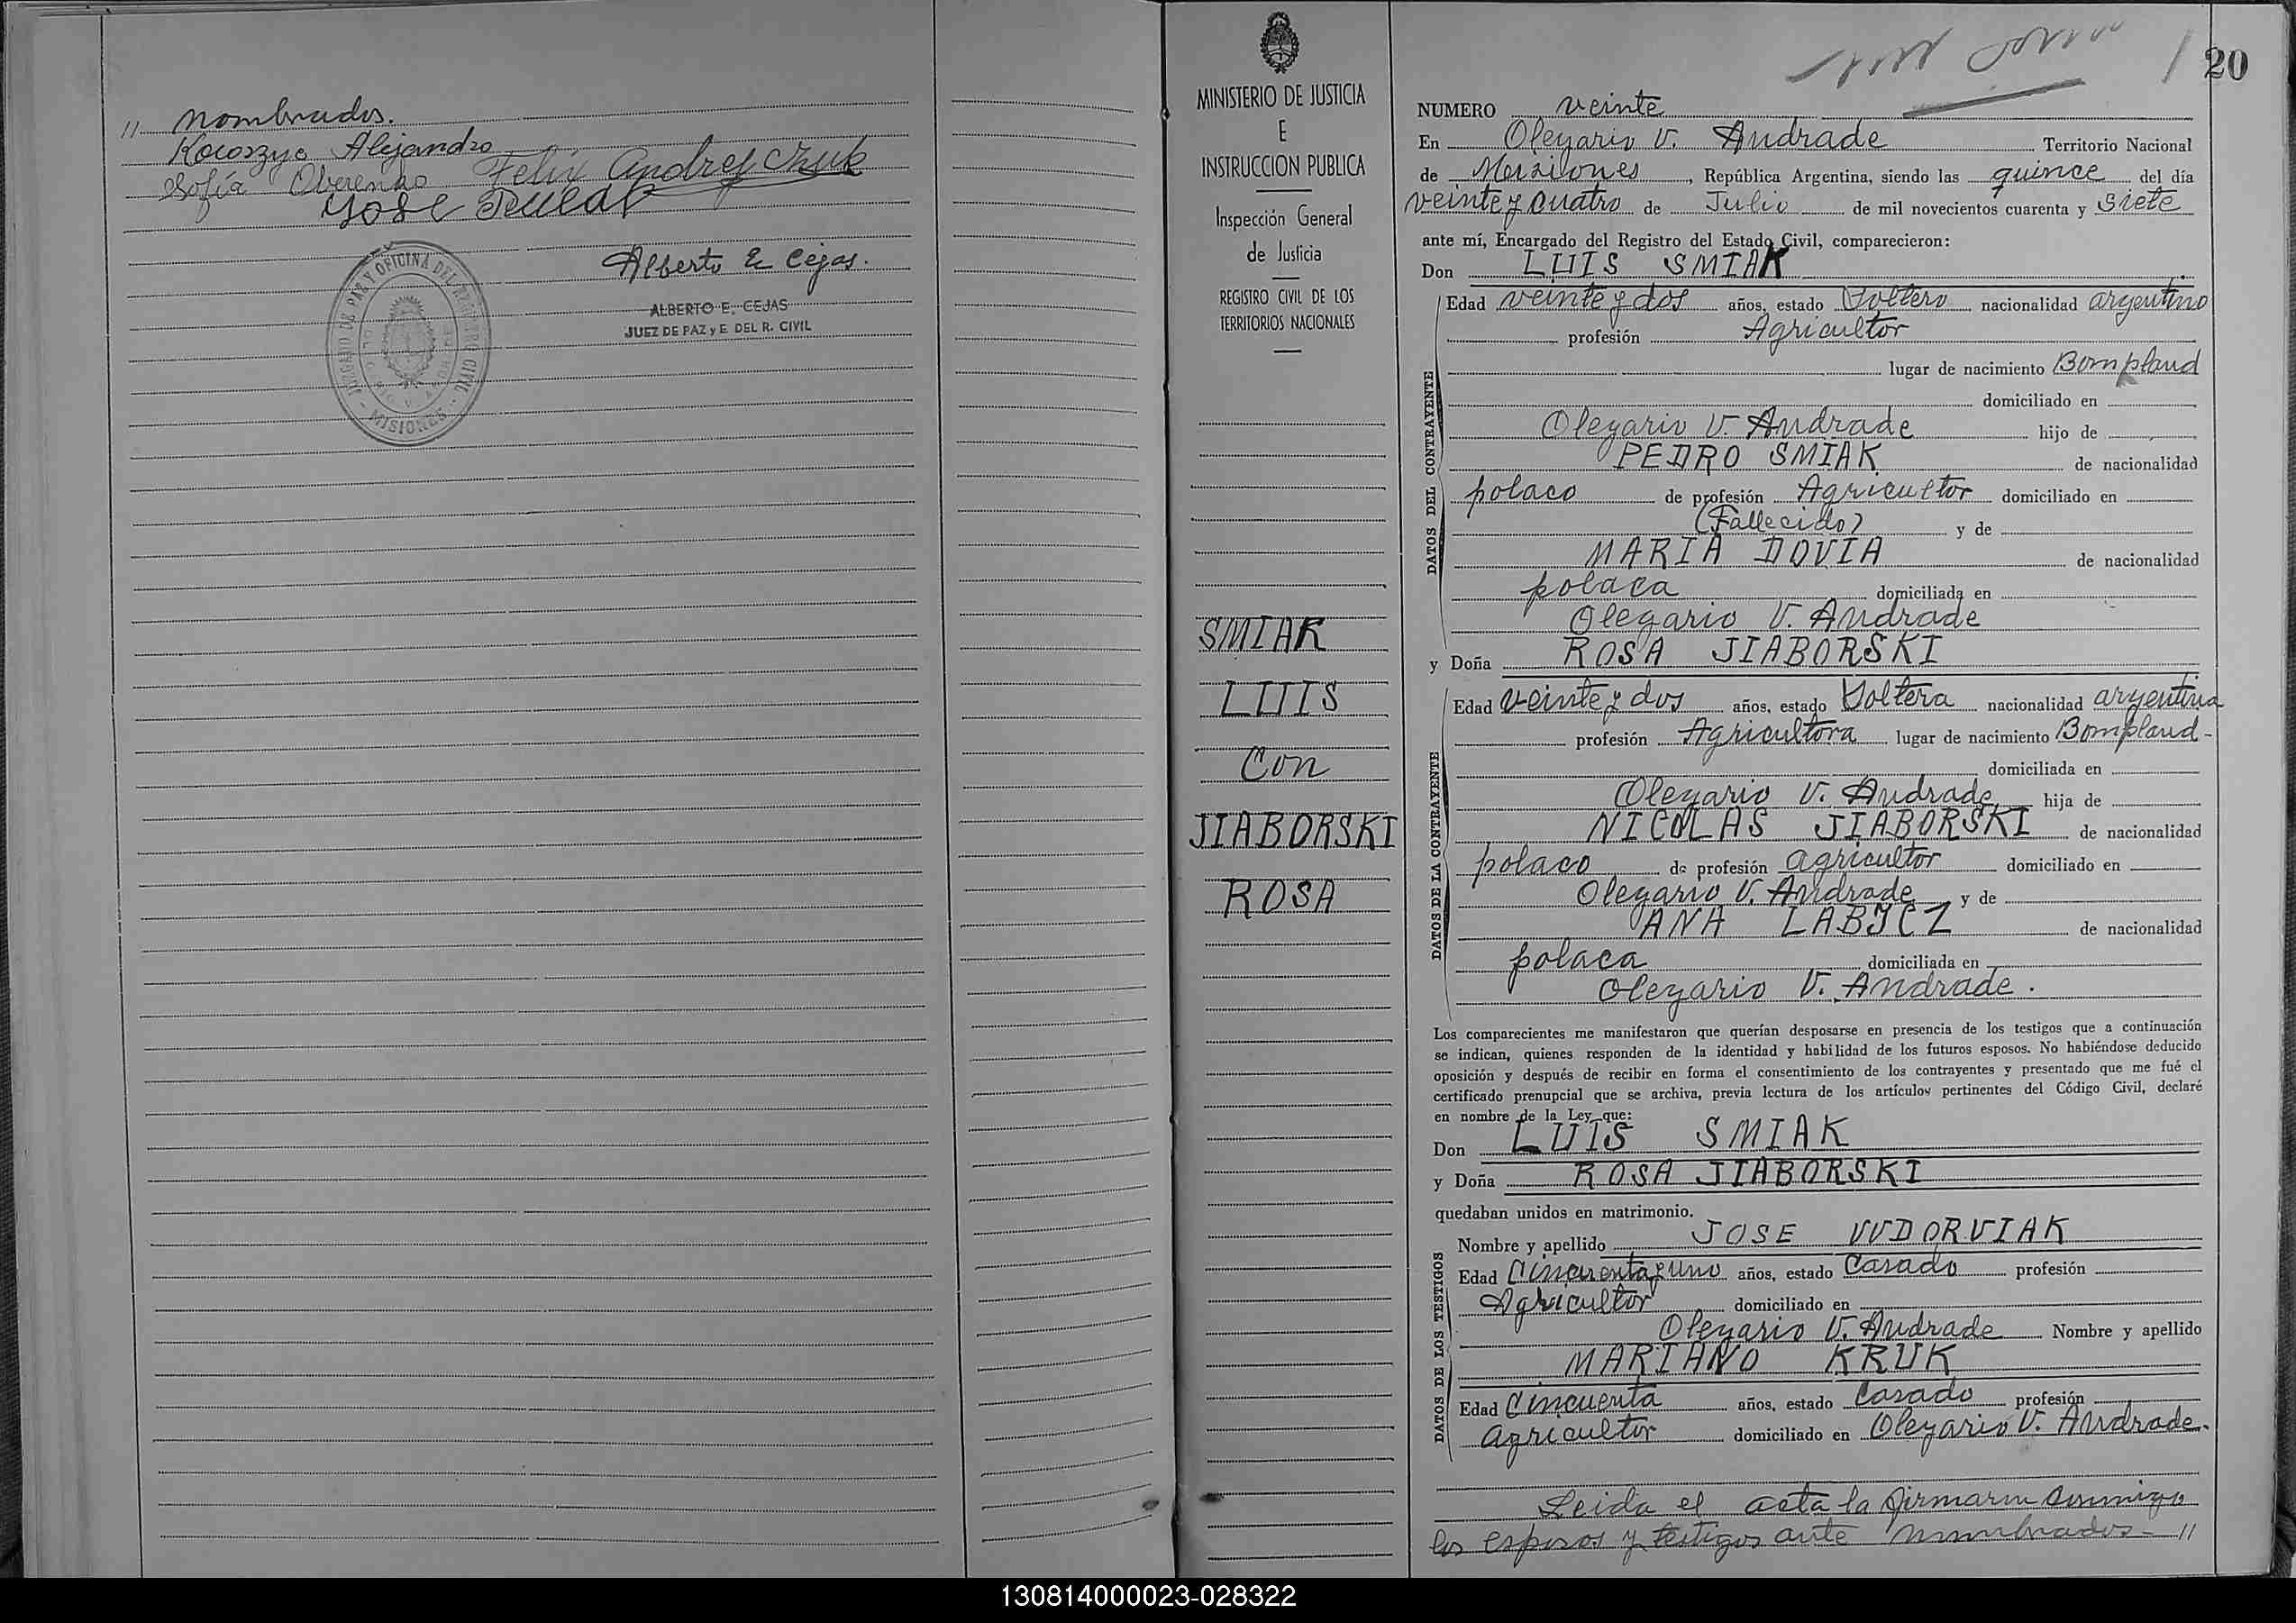 // nombrados.
Kocorzyc Alejandro
Sofía Oberenko Felix Andrejczuk
José
Alberto E Cejas.
ALBERTO E. CEJAS
JUEZ DE PAZ y E. DEL R. CIVIL
JUZGADO DE PAZ Y OFICINA DEL REGISTRO CIVIL
- MISIONES -
MINISTERIO DE JUSTICIA
E
INSTRUCCION PUBLICA
Inspección General
de Justicia
REGISTRO CIVIL DE LOS
TERRITORIOS NACIONALES
SMIAK
LUIS
Con
JIABORSKI
ROSA
20
NUMERO veinte
En Olegario V. Andrade Territorio Nacional
de Misiones, República Argentina, siendo las quince del día
veinte y cuatro de Julio de mil novecientos cuarenta y siete
ante mí, Encargado del Registro del Estado Civil, comparecieron:
Don LUIS SMIAK
DATOS DEL CONTRAYENTE
Edad veinte y dos años, estado Soltero nacionalidad argentino
profesión Agricultor
lugar de nacimiento Bompland
domiciliado en
Olegario V. Andrade hijo de
PEDRO SMIAK de nacionalidad
polaco de profesión Agricultor domiciliado en
(Fallecido) y de
MARIA DOVIA de nacionalidad
polaca domiciliada en
Olegario V. Andrade
y Doña ROSA JIABORSKI
DATOS DE LA CONTRAYENTE
Edad veinte y dos años, estado Soltera nacionalidad argentina
profesión Agricultora lugar de nacimiento Bompland-
domiciliada en
Olegario V. Andrade hija de
NICOLAS JIABORSKI de nacionalidad
polaco de profesión agricultor domiciliado en
Olegario V. Andrade y de
ANA LABJCZ de nacionalidad
polaca domiciliada en
Olegario V. Andrade.
Los comparecientes me manifestaron que querían desposarse en presencia de los testigos que a continuación
se indican, quienes responden de la identidad y habilidad de los futuros esposos. No habiéndose deducido
oposición y después de recibir en forma el consentimiento de los contrayentes y presentado que me fué el
certificado prenupcial que se archiva, previa lectura de los artículos pertinentes del Código Civil, declaré
en nombre de la Ley que:
Don LUIS SMIAK
y Doña ROSA JIABORSKI
quedaban unidos en matrimonio.
DATOS DE LOS TESTIGOS
Nombre y apellido JOSE VVDORVIAK
Edad Cincuenta y uno años, estado Casado profesión
Agricultor domiciliado en
Olegario V. Andrade Nombre y apellido
MARIANO KRUK
Edad Cincuenta años, estado Casado profesión
agricultor domiciliado en Olegario V. Andrade.
Leida el acta la firmaron conmigo
los esposos y testigos ante nombrados- //
130814000023-028322